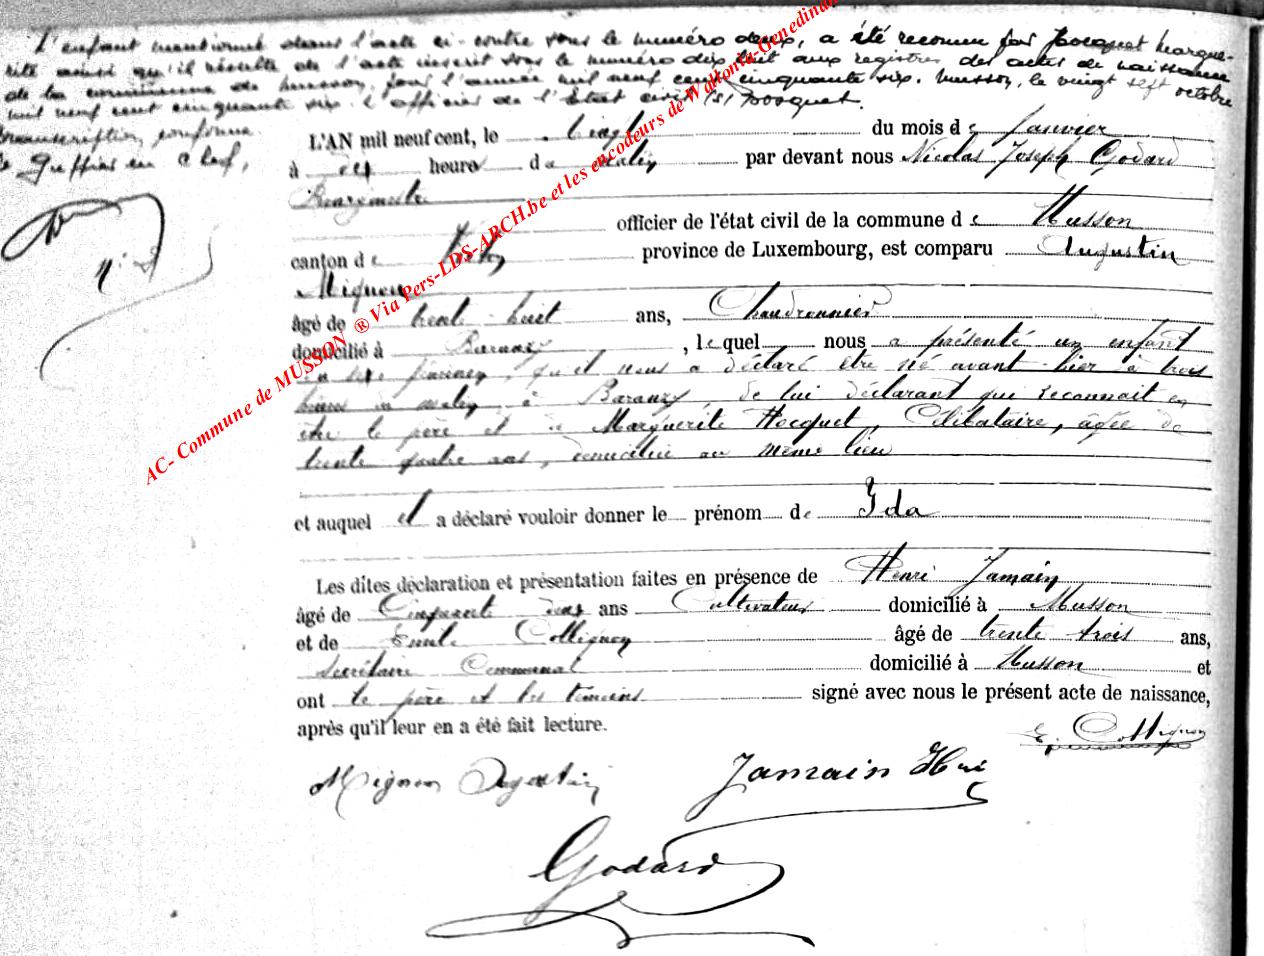 L'enfant mentionné dans l'acte ci-contre sous le numéro deux, a été reconnu par Hocquet Margue-
rite ainsi qu'il résulte de l'acte inscrit sous le numéro dix huit aux registres des actes de naissance
de la commune de Musson, pour l'année mil neuf cent cinquante six. Musson, le vingt sept octobre
mil neuf cent cinquante six. L'officier de l'Etat civil, (s)
transcription conforme
Le Greffier en Chef,
N° 2
L'AN mil neuf cent, le du mois de Janvier
à dix heures du matin par devant nous Nicolas Joseph Godard
Bourgmestre
officier de l'état civil de la commune de Musson
canton de Virton province de Luxembourg, est comparu Augustin
Mignon
âgé de trente huit ans, Chaudronnier
domicilié à Baranzy, lequel nous a présenté un enfant
du sexe féminin, qu'il nous a déclaré être né avant hier à trois
heures du matin, à Baranzy, de lui déclarant qui reconnait en
être le père et de Marguerite Hocquet, Célibataire, âgée de
trente quatre ans, domiciliée au même lieu
et auquel il a déclaré vouloir donner le prénom de Ida
Les dites déclaration et présentation faites en présence de Henri Jamain
âgé de Cinquante deux ans Cultivateur domicilié à Musson
et de Emile Collignon âgé de trente trois ans,
secrétaire Communal domicilié à Musson et
ont le père et les témoins signé avec nous le présent acte de naissance,
après qu'il leur en a été fait lecture.
E. Collignon
Mignon Augustin Jamain Hri
Godard
AC- Commune de MUSSON ® Via Pers-LDS-ARCH.be et les encodeurs de Wallonia-Genedinao